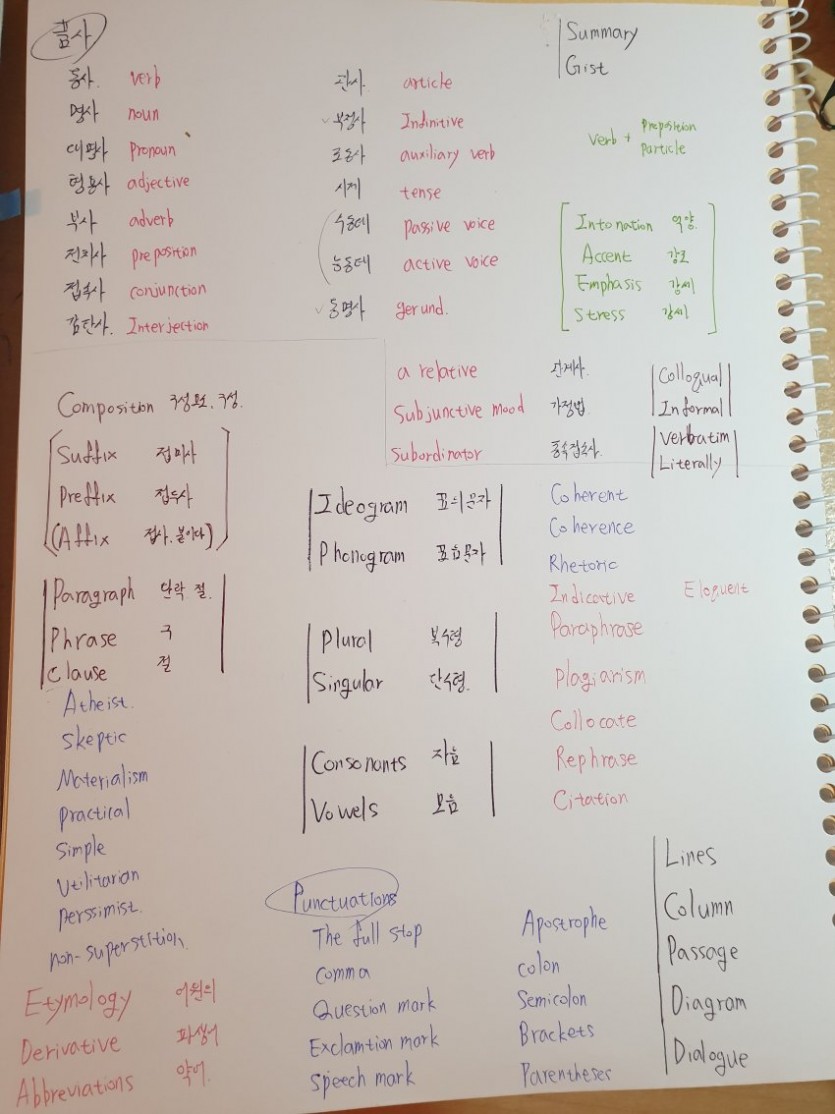 품사
동사. verb
명사 noun
대명사 Pronoun
형용사 adjective
부사 adverb
전치사 preposition
접속사 conjunction
감탄사. Interjection
관사 article
부정사 Indinitive
조동사 auxiliary verb
시제 tense
수동태 passive voice
능동태 active voice
동명사 gerund.
Summary
Gist
verb + Preposition
particle
Intonation 억양.
Accent 강조
Emphasis 강세
Stress 강세
a relative 관계사.
Subjunctive mood 가정법
Subordinator 종속접속사.
Colloqual
Informal
Verbatim
Literally
Composition 구성요소, 구성.
Suffix 접미사
Preffix 접두사
(Affix 접사. 붙이다)
Paragraph 단락. 절.
Phrase 구
Clause 절
Ideogram 표의문자
Phonogram 표음문자
Plural 복수형
Singular 단수형.
Consonants 자음
Vowels 모음
Coherent
Coherence
Rhetoric
Indicative Eloguent
Paraphrase
Plagiarism
Collocate
Rephrase
Citation
Atheist.
Skeptic
Materialism
practical
Simple
Utilitarian
perssimist.
non-superstition.
Etymology 어원의
Derivative 파생어
Abbreviations 약어.
Punctuations
The full stop
comma
Question mark
Exclamtion mark
Speech mark
Apostrophe
colon
Semicolon
Brackets
Parentheses
Lines
Column
Passage
Diagram
Dialogue